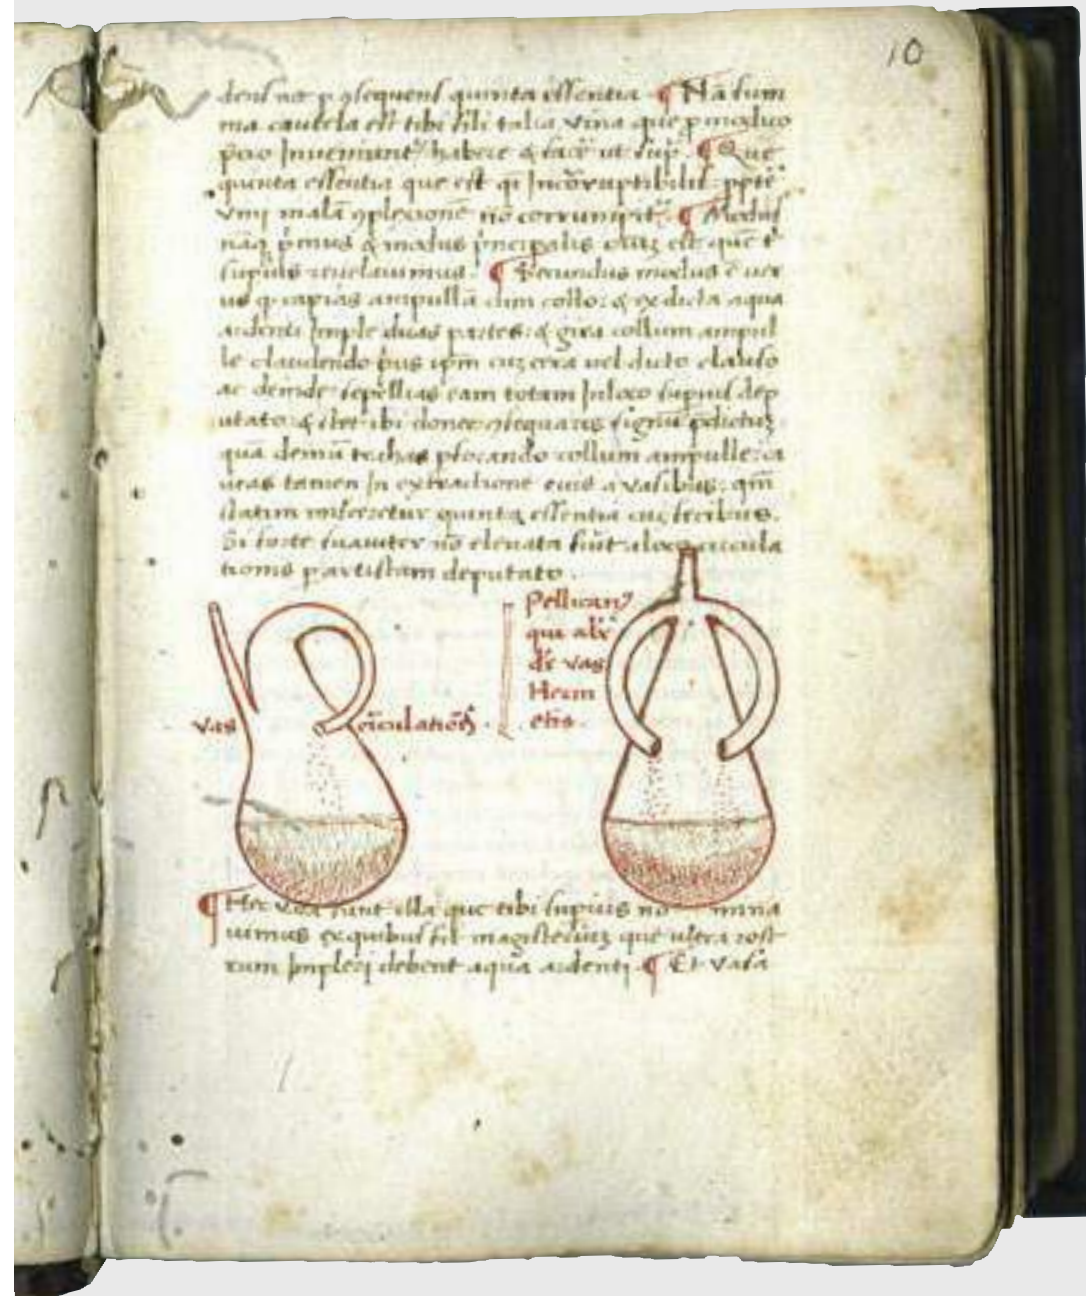 10
quinta essentia ¶ Nā sum
ma cautela est tibi fili talia vina que p modico
p̄cio Inueniunt᷑ habere & facē ut sup̄. ¶ Que
quinta essentia que est q̄ Incōruptibilis ppt̄e
vini malā ɔplexionē nō corrumpit᷑. ¶ Modus
p̄mus & modus p̄ncipalis est quē t̄
supius reuelauimus. ¶ Secundus modus ē uer
us q̄ capias ampullā cum collo: & ex dicta aqua
ardenti Imple duas partes: & gira collum ampul
le claudendo p̄us ip̄m cuz cera uel luto clauso
ac deinde sepellias eam totam In loco supius dep
utato: & stet ibi donec ɔsequaris signū p̄dictuz
quā demū trahas pforando collum ampulle: ca
ueas tamen In extractione eius a vasibus: qm̄
statim misceretur quinta essentia cuz fecibus.
Si forte suauiter nō eleuata fuit a loco circula
tionis p artistam deputato.
Pellicanꝰ
qui alr̄
dr̄ vas
Herm
etis.
vas circulatiōis.
¶ Hec vasa sunt illa que tibi supius nō mina
uimus ex quibus fit magisteriuz que ultra rost
rum Impleri debent aqua ardenti ¶ Et vasa